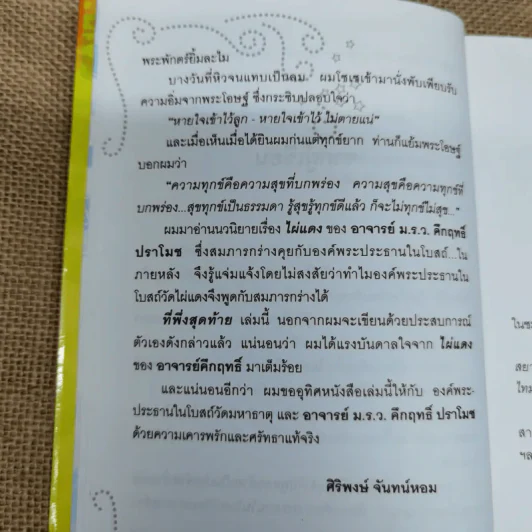 พระพักตร์ยิ้มละไม
บางวันที่หิวจนแทบเป็นลม ผมโซเซเข้ามานั่งพับเพียบรับ
ความอิ่มจากพระโอษฐ์ ซึ่งกระซิบปลอบใจว่า
"หายใจเข้าไว้ลูก - หายใจเข้าไว้ ไม่ตายแน่"
และเมื่อเห็นเมื่อได้ยินผมก่นแต่ทุกข์ยาก ท่านก็แย้มพระโอษฐ์
บอกผมว่า
"ความทุกข์คือความสุขที่บกพร่อง ความสุขคือความทุกข์ที่
บกพร่อง...สุขทุกข์เป็นธรรมดา รู้สุขรู้ทุกข์ดีแล้ว ก็จะไม่ทุกข์ไม่สุข..."
ผมมาอ่านนวนิยายเรื่อง ไผ่แดง ของ อาจารย์ ม.ร.ว. คึกฤทธิ์
ปราโมช ซึ่งสมภารกร่างคุยกับองค์พระประธานในโบสถ์...ใน
ภายหลัง จึงรู้แจ่มแจ้งโดยไม่สงสัยว่าทำไมองค์พระประธานใน
โบสถ์วัดไผ่แดงจึงพูดกับสมภารกร่างได้
ที่พึ่งสุดท้าย เล่มนี้ นอกจากผมจะเขียนด้วยประสบการณ์
ตัวเองดังกล่าวแล้ว แน่นอนว่า ผมได้แรงบันดาลใจจาก ไผ่แดง
ของ อาจารย์คึกฤทธิ์ มาเต็มร้อย
และแน่นอนอีกว่า ผมขออุทิศหนังสือเล่มนี้ให้กับ องค์พระ-
ประธานในโบสถ์วัดมหาธาตุ และ อาจารย์ ม.ร.ว. คึกฤทธิ์ ปราโมช
ด้วยความเคารพรักและศรัทธาแท้จริง
ศิริพงษ์ จันทน์หอม
ในชม
สยา
ใหม
สา
ฯล